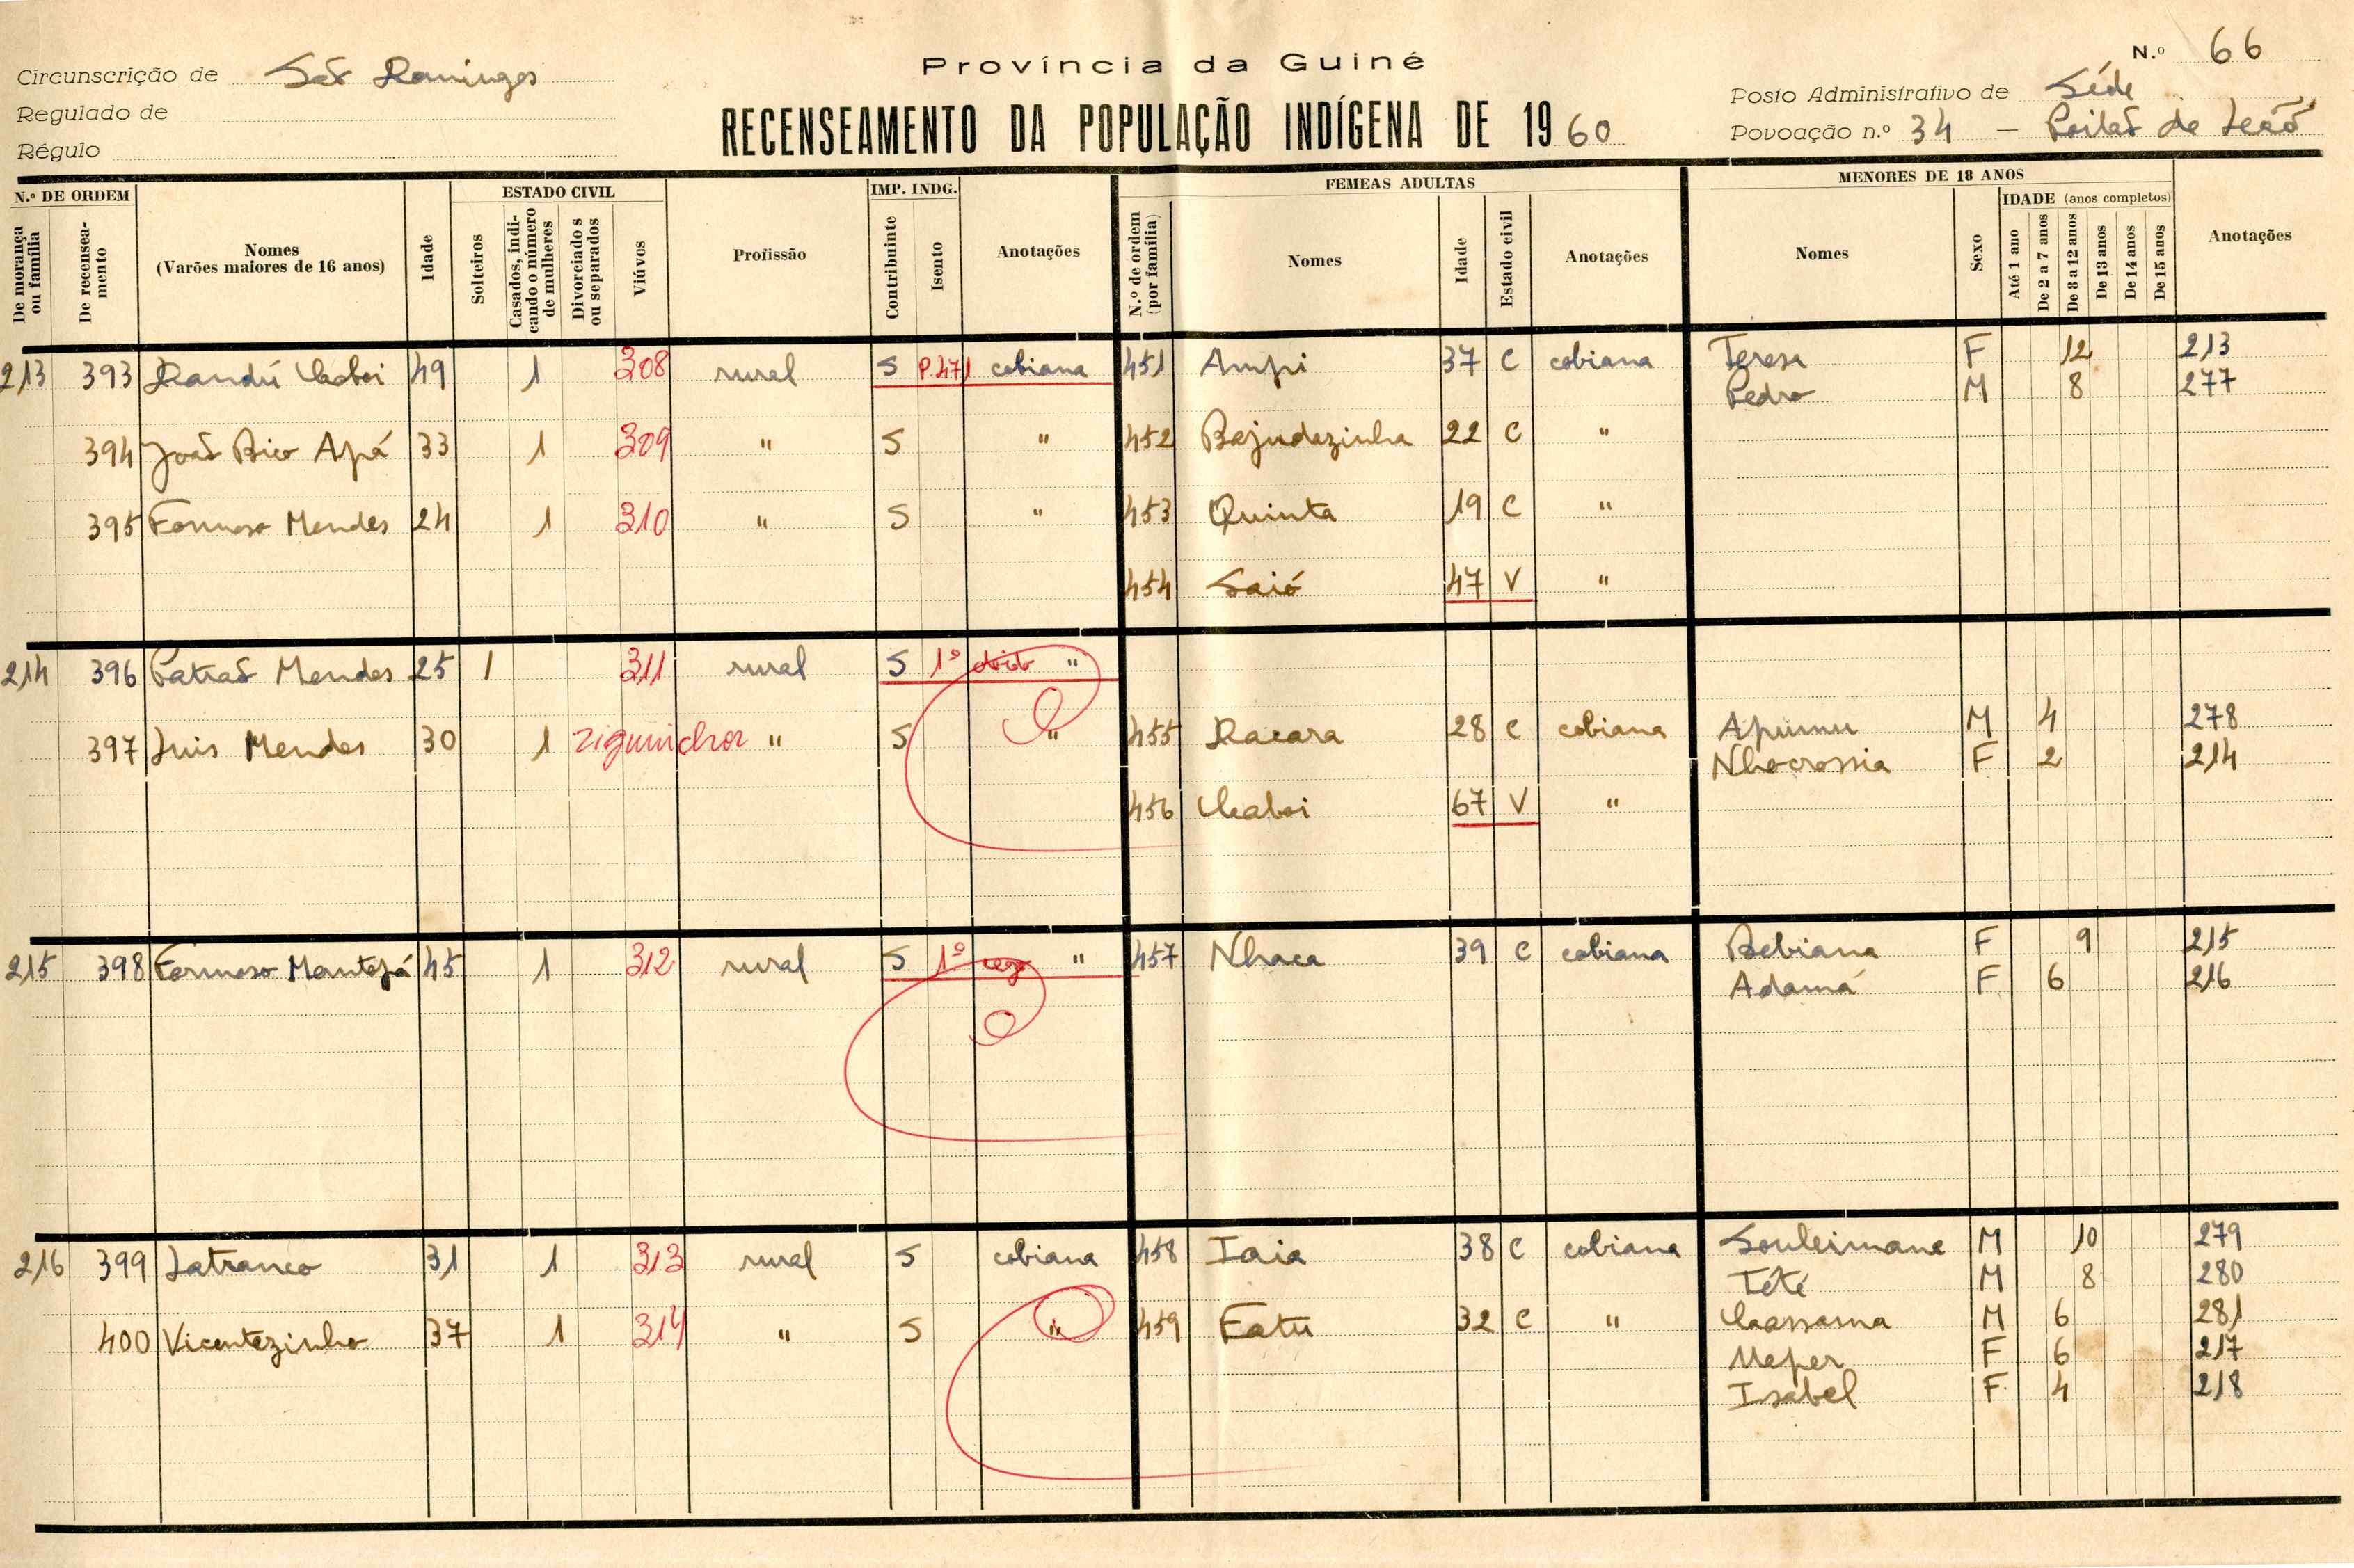 Província da Guiné
N.º 66
Circunscrição de São Domingos
Regulado de
Régulo
RECENSEAMENTO DA POPULAÇÃO INDÍGENA DE 1960
Posto Administrativo de Séde
Povoação n.º 34 — Poilão de Leão
N.º DE ORDEM
De morança ou família
De recenseamento
Nomes
(Varões maiores de 16 anos)
Idade
ESTADO CIVIL
Solteiros
Casados, indicando o número de mulheres
Divorciados ou separados
Viúvos
Profissão
IMP. INDG.
Contribuinte
Isento
Anotações
FEMEAS ADULTAS
N.º de ordem (por família)
Nomes
Idade
Estado civil
Anotações
MENORES DE 18 ANOS
Nomes
Sexo
IDADE (anos completos)
Até 1 ano
De 2 a 7 anos
De 8 a 12 anos
De 13 anos
De 14 anos
De 15 anos
Anotações
213 393 Dandú Caboi 49 1 308 rural S P.471 cobiana 451 Ampi 37 C cobiana Teresa F 12 213
Pedro M 8 277
394 João Bico Apá 33 1 309 " S " 452 Bajudazinha 22 C "
395 Formoso Mendes 24 1 310 " S " 453 Quinta 19 C "
454 Saió 47 V "
214 396 Patrão Mendes 25 1 311 rural S 1º "
397 Luis Mendes 30 1 ziguinchor " S " 455 Dacara 28 C cobiana Apumu M 4 278
Nhocrossia F 2 214
456 Caboi 67 V "
215 398 Formoso Mantejá 45 1 312 rural S 1º " 457 Nhaca 39 C cobiana Bebiana F 9 215
Adamá F 6 216
216 399 Latranco 31 1 313 rural S cobiana 458 Iaia 38 C cobiana Souleimane M 10 279
Tété M 8 280
400 Vicentezinho 37 1 314 " S " 459 Fatu 32 C " Cassama M 6 281
Meper F 6 217
Isabel F 4 218